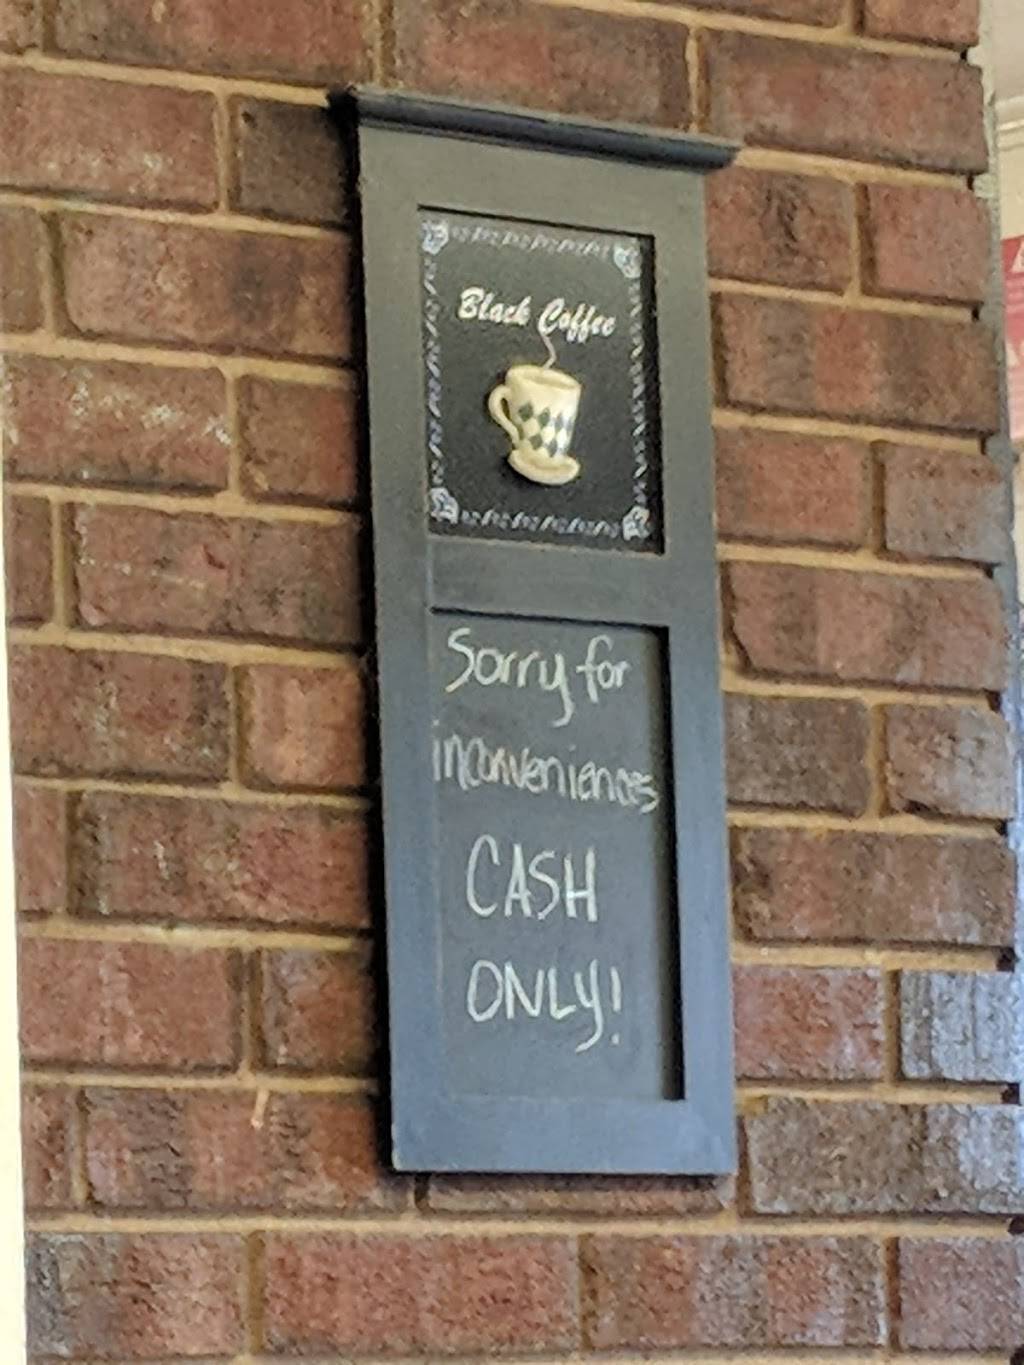 Black Coffee
Sorry for
inconveniences
CASH
ONLY!